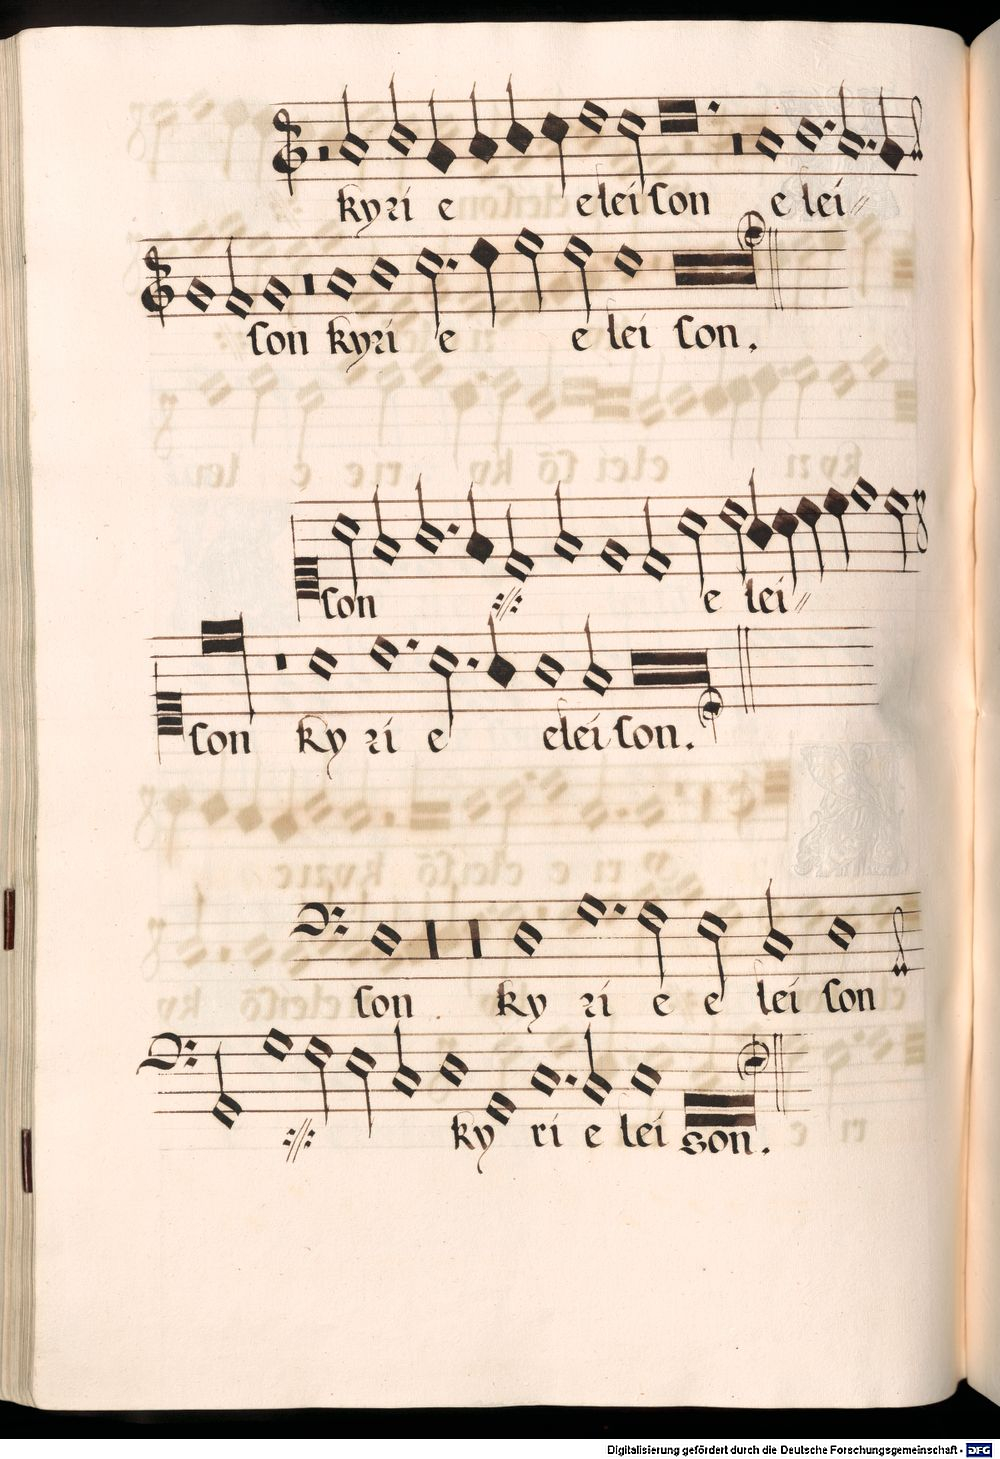 kyri e e lei son e lei
son kyri e e lei son.
son e lei
son ky ri e elei son.
son ky ri e e lei son
ky ri e lei son.
Digitalisierung gefördert durch die Deutsche Forschungsgemeinschaft - DFG